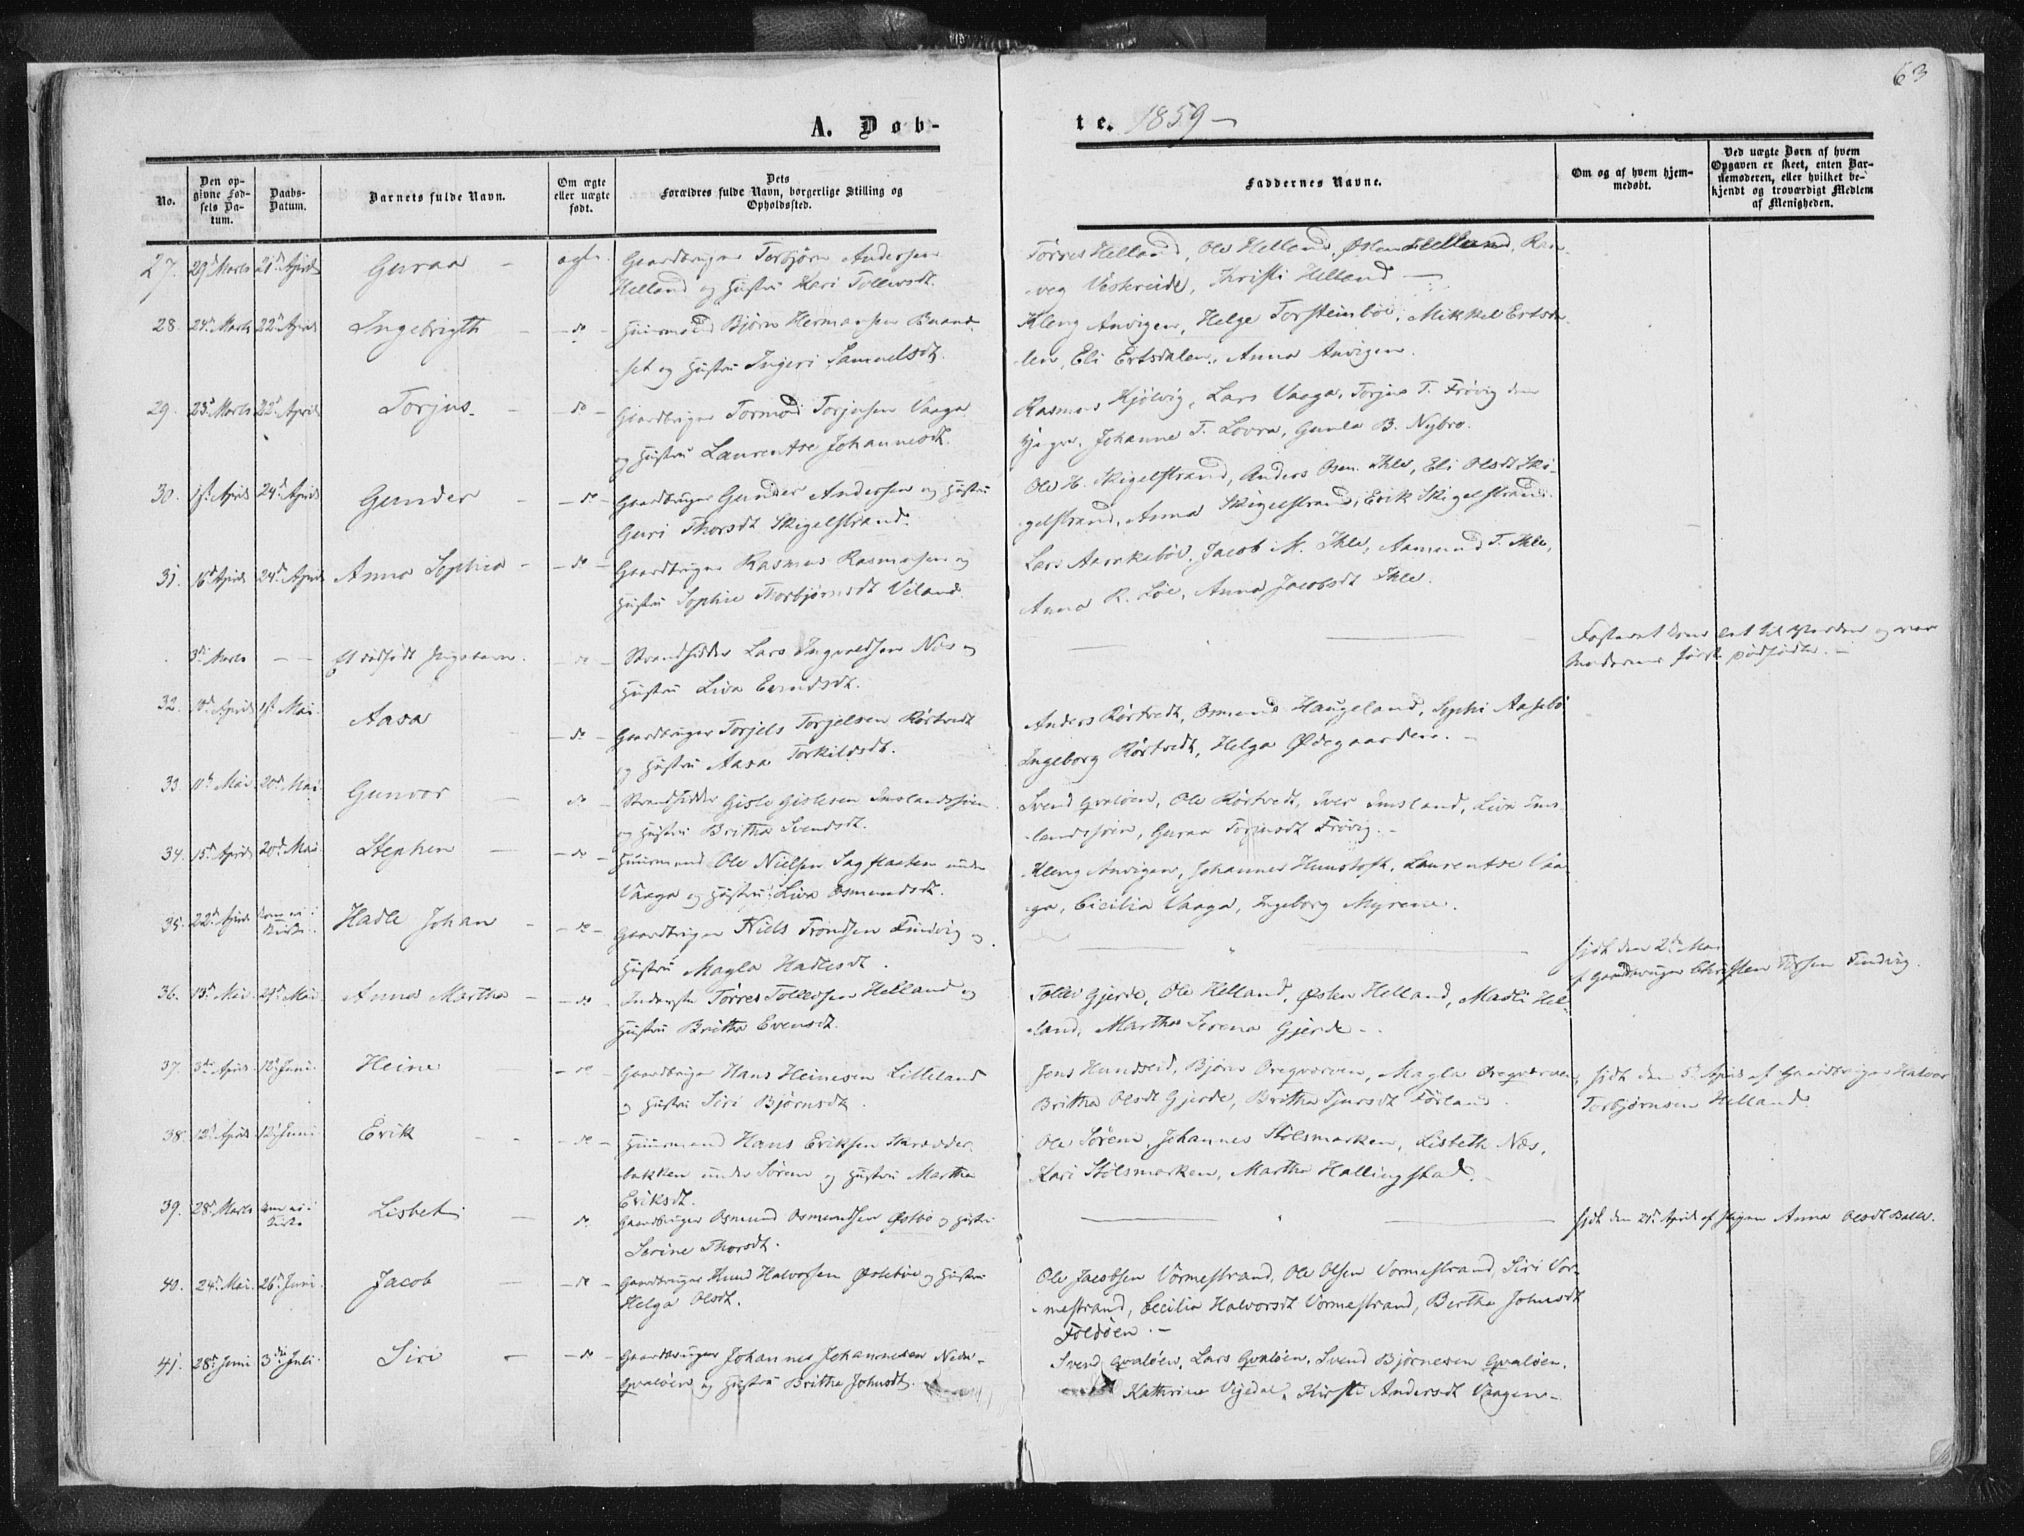 63
A. Døb-
te. 1859 —
No.
Den op-
givne Fød-
sels Da-
tum.
Daabs-
Datum.
Barnets fulde Navn.
Om ægte
eller uægte
født.
Dets
Forældres fulde Navn, borgerlige Stilling og
Opholdssted.
Faddernes Navne.
Om og af hvem hjem-
medøbt.
Ved uægte Børn af hvem
Opgaven er skeet, enten Bar-
nemoderen, eller hvilket be-
kjendt og troværdigt Medlem
af Menigheden.
27. 29de Marts 21de April Guraa — ægte. Gaardbruger Torbjørn Andersen
Helland og Hustru Kari Tollevsdt.
Tørres Helland, Ole Helland, Østen Helland, Ran-
veg Veskreide, Kristi Helland —
28. 24de Marts 22de April Ingebrigth — do — Huusmand Bjørn Hermansen Buand-
set og Hustru Ingeri Samuelsdt.
Kleng Anvigen, Helge Torsteinbø, Mikkel Ertsda-
len, Eli Ertsdalen, Anna Anvigen.
29. 23de Marts 22de April Torjus. — do — Gaardbruger Tormod Torjusen Vaaga
og Hustru Laurentse Johannesdt.
Rasmus Kjølvig, Lars Vaaga, Torjus T. Frøvig den
yngre, Johanne T. Lovra, Gunla B. Nybro.
30. 1ste April 24de April Gunder — do — Gaardbruger Gunder Andersen og Hustru
Guri Thorsdt Skigelstrand.
Ole H. Skigelstrand, Anders Osm. Ihle, Eli Olsdt Ski-
gelstrand, Anna Skigelstrand, Erik Skigelstrand.
31. 16de April 24de April Anna Sophia — do — Gaardbruger Rasmus Rasmusen og
Hustru Sophie Thorbjørnsdt Veland.
Lars Aarrkebø, Jacob M. Ihle, Aamund T. Ihle,
Anna R. Løe, Anna Jacobsdt Ihle.
3de Marts — — Et dødfødt Pigebarn. — do — Strandsidder Lars Ingvaldsen Næs og
Hustru Liva Evindsdt.
Fosteret kom let til Verden og var
Moderens første dødfødte. —
32. 10de April 1ste Mai Aasa — do — Gaardbruger Torjels Torjelsen Rørtvedt
og Hustru Aasa Torkildsdt.
Anders Rørtvedt, Osmund Haugeland, Sophi Aasebø
Ingeborg Rørtvedt, Helga Ødegaarden. —
33. 11te Mai 20de Mai Gunvor — do — Strandsidder Gisle Gislesen Imslandssjøen
og Hustru Britha Svendsdt.
Svend Qvaløen, Ole Rørtvedt, Iver Imsland, Liva Ims-
landssjøen, Guraa Torjusdt Frøvig. —
34. 15de April 20de Mai Stephen — do — Huusmand Ole Nielsen Sagflaaten under
Vaaga og Hustru Liva Osmundsdt.
Kleng Anvigen, Johannes Hunstoft, Laurentse Vaa-
ga, Cicilia Vaaga, Ingeborg Myrene.
35. 22de April kom ei i
Kirke. Hadle Johan — do — Gaardbruger Niels Trondsen Findvig og
Hustru Magla Hadlesdt.
hjdt den 2de Mai
af Gaardbruger Christen Tørsen Findvig.
36. 13de Mai 29de Mai Anna Martha — do — Inderste Tørres Tollevsen Helland og
Hustru Britha Evensdt.
Tollev Gjerde, Ole Helland, Østen Helland, Madli Hel-
land, Martha Serena Gjerde —
37. 3de April 12te Juni Heine — do — Gaardbruger Hans Heinesen Lilleland
og Hustru Siri Bjørnsdt.
Jens Hundseid, Bjørn Øreqværven, Magla Øreqværven,
Britha Olsdt Gjerde, Britha Sjursdt Førland.
hjdt den 5te April af Gaardbruger Halvor
Torbjørnsen Helland.
38. 12te April 12te Juni Erik — do — Huusmand Hans Eriksen Skrædder-
bakken under Sørem og Hustru Martha
Eriksdt.
Ole Sørem, Johannes Stølsmarken, Lisbeth Næs,
Kari Stølsmarken, Martha Hallingstad. —
39. 28de Marts kom ei i
Kirke Lisbet — do. Gaardbruger Osmund Osmundsen Østbø og Hustru
Serine Thorsdt.
hjdt den 21de April af Pigen Anna Olsdt Balle.
40. 24de Mai 26de Juni Jacob — do — Gaardbruger Knud Halvorsen Østebøe og Hustru
Helga Olsdt.
Ole Jacobsen Vormestrand, Ole Olsen Vormestrand, Siri Vor-
mestrand, Cecilia Halvorsdt Vormestrand, Bertha Johnsdt
Foldøen. —
41. 28de Juni 3die Juli. Siri — do — Gaardbruger Johannes Johannesen Nedr-
Qvaløen og Hustru Britha Johnsdt.
Svend Qvaløen, Lars Qvaløen, Svend Bjørnesen Qvaløen,
Kathrine Vigedal, Kirsti Andersdt Vaagen —